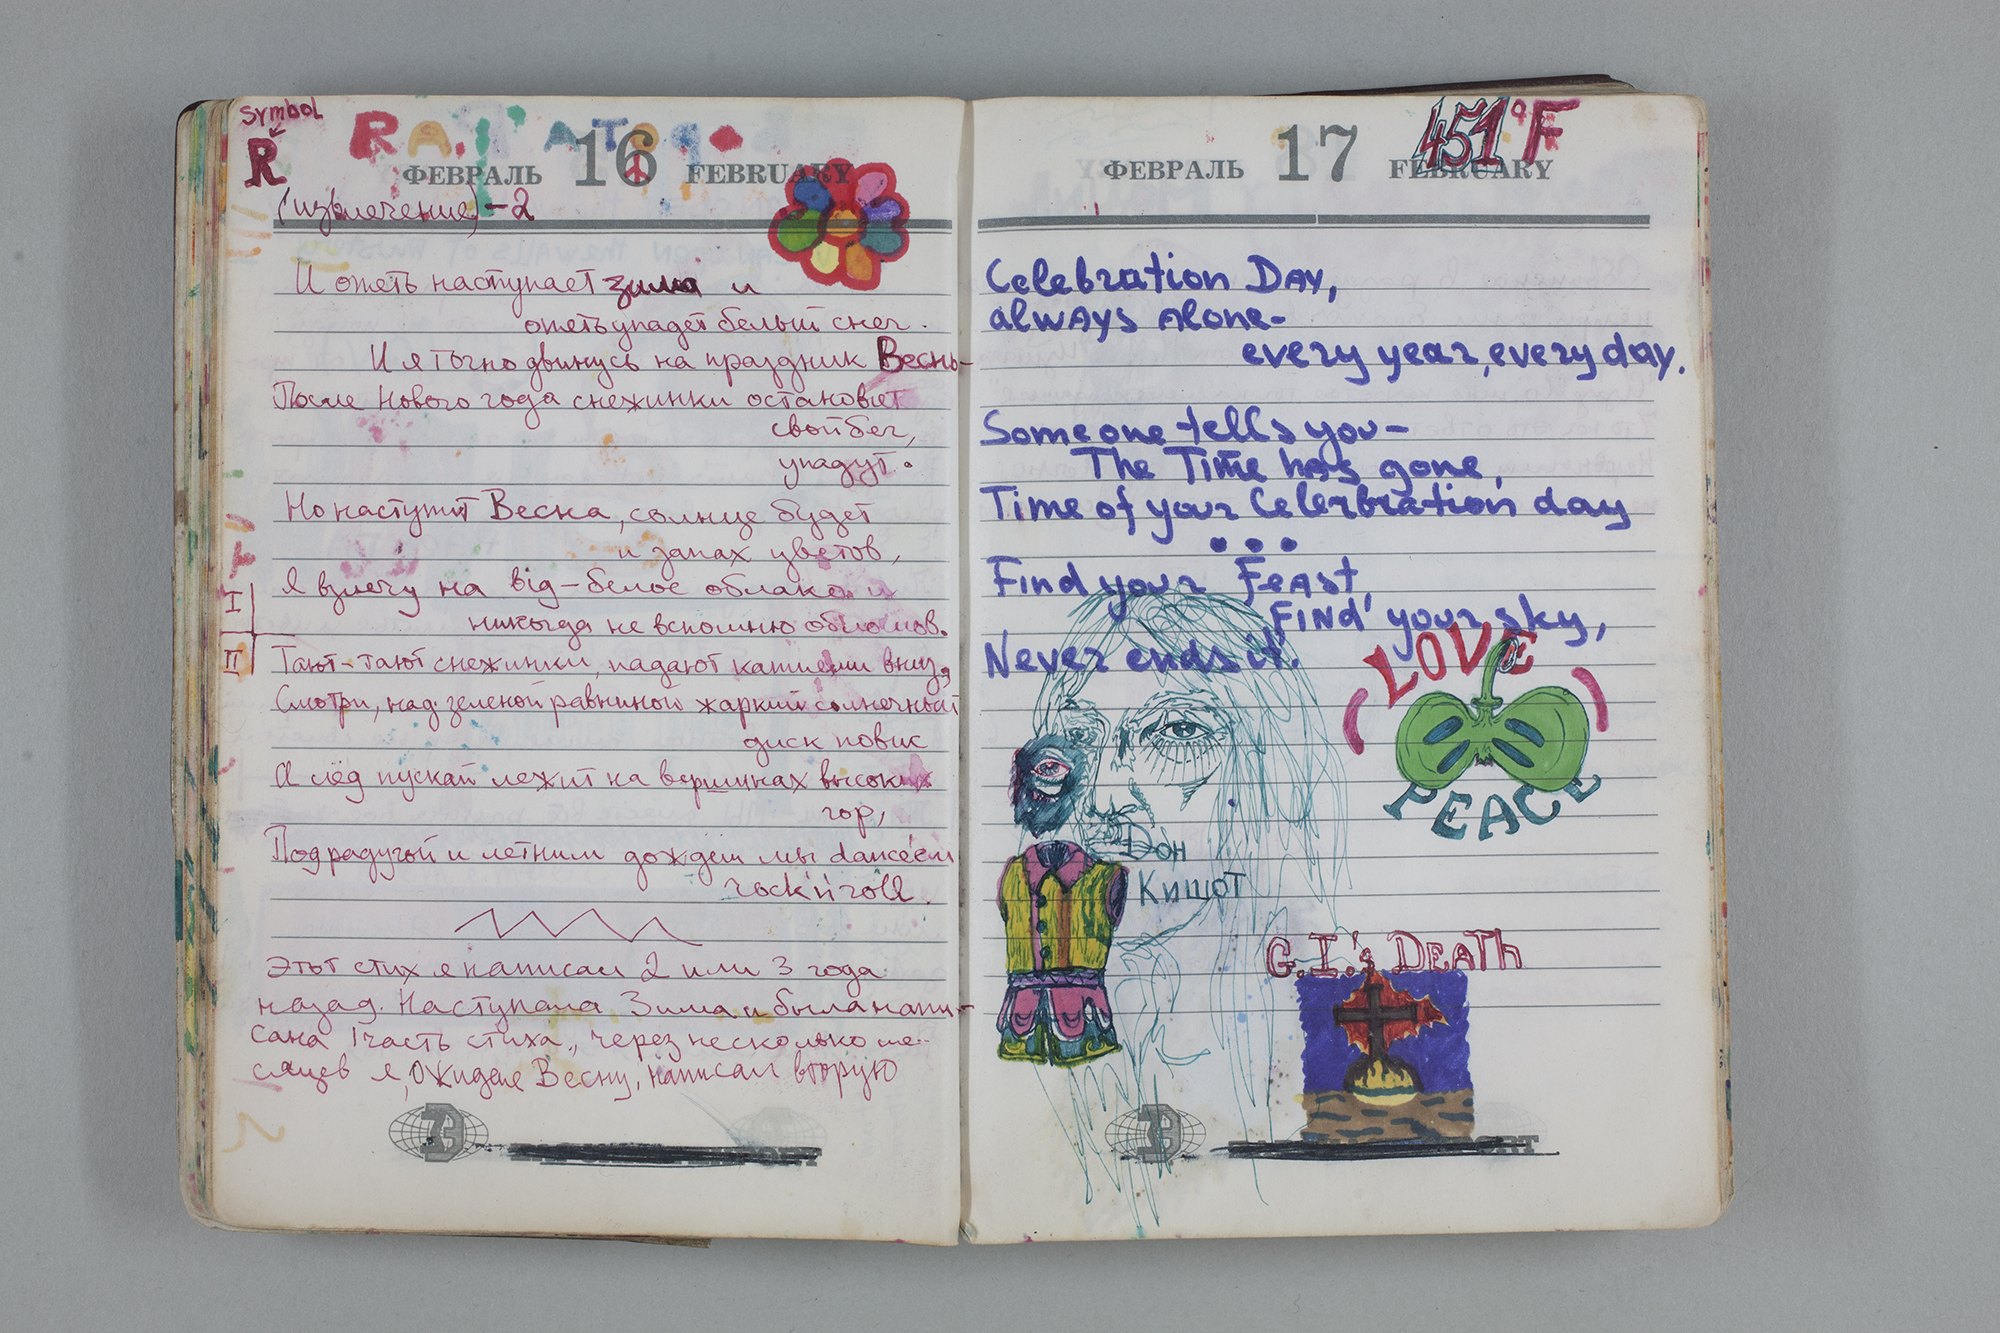 Symbol
R
ФЕВРАЛЬ 16 FEBRUARY
(извлечение)-2
И опять наступает зима и
опять упадет белый снег.
И я точно двинусь на праздник Весны-
После Нового года снежинки остановят
свой бег,
упадут.
Но наступит Весна, солнце будет
и запах цветов,
Я взлечу на від-белое облако и
никогда не вспомню обломов.
I
II
Тают-тают снежинки, падают каплями вниз,
Смотри, над зеленой равниной жаркий солнечный
диск повис
А лёд пускай лежит на вершинах высоких
гор,
Под радугой и летним дождем мы danceем
rock'n'roll.
Этот стих я написал 2 или 3 года
назад. Наступала Зима и была напи-
сана 1 часть стиха, через несколько ме-
сяцев я, ожидая Весну, написал вторую
ФЕВРАЛЬ 17 FEBRUARY
451°F
Celebration DAY,
always alone-
every year, every day.
Someone tells you-
The Time has gone,
Time of your Celerbration day
...
Find your Feast,
FIND your sky,
Never ends it.
(LOVE)
PEACE
Дон
Кишот
G.I.'s DEATH